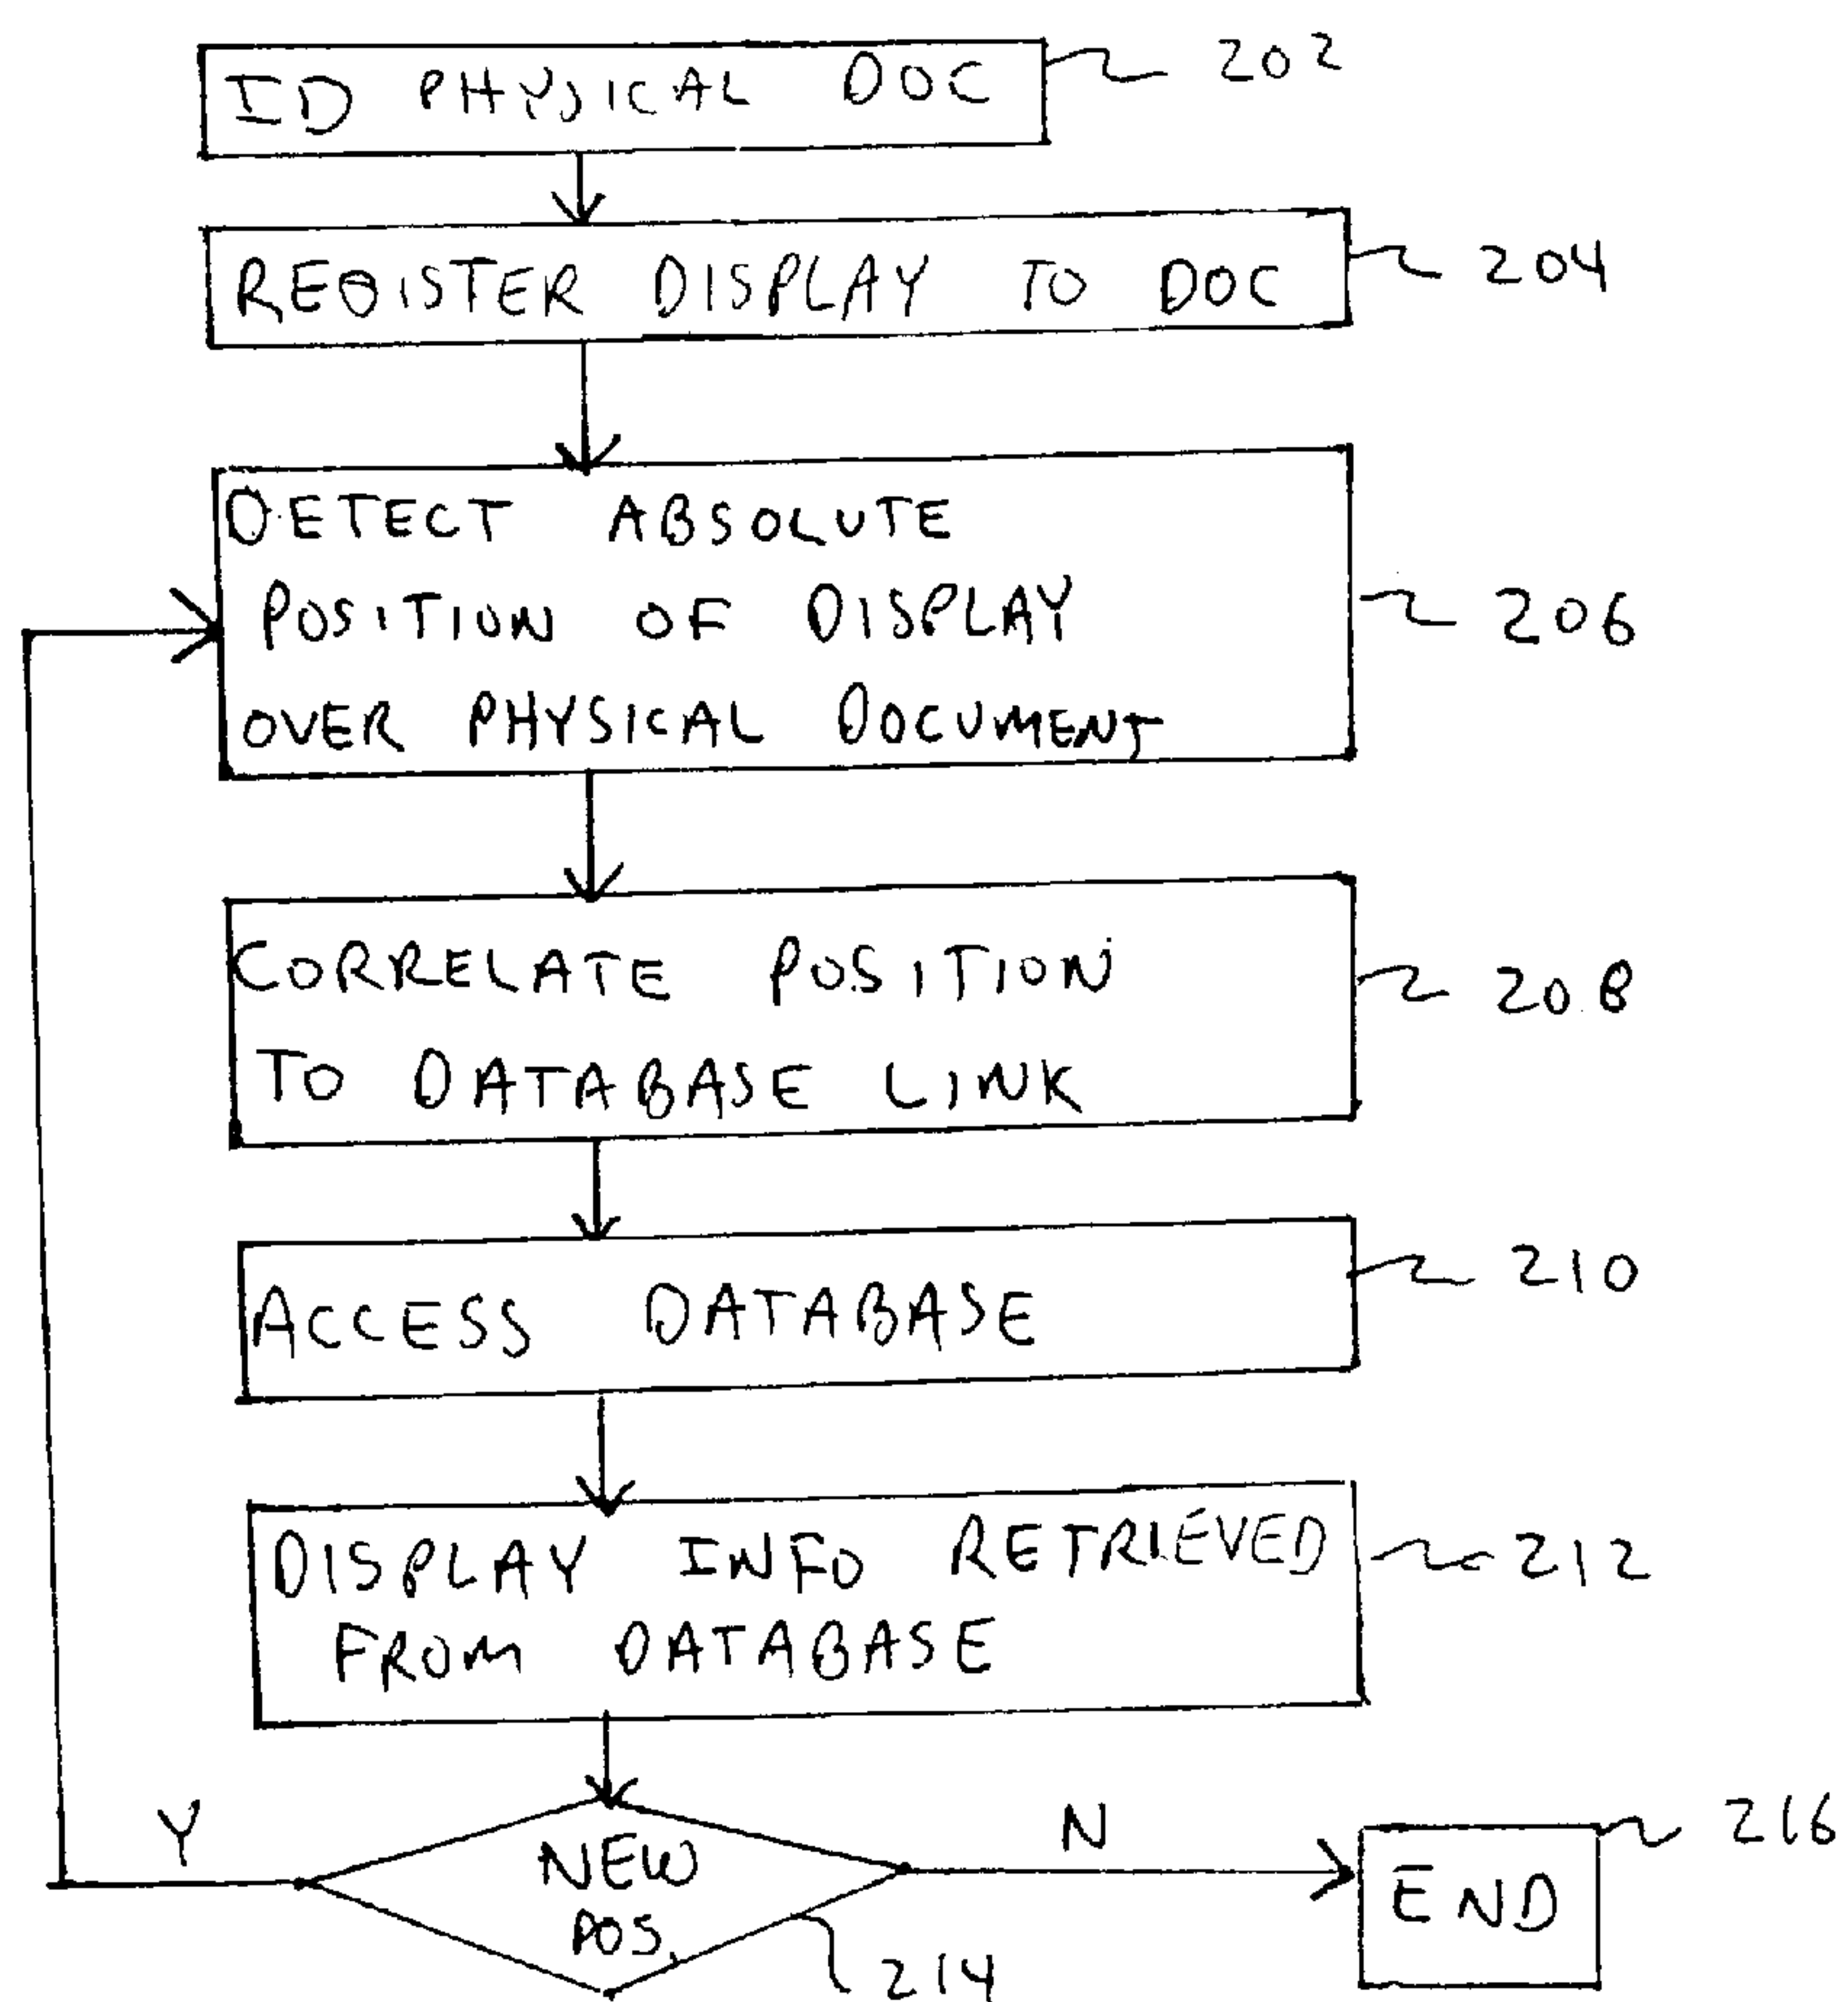 ID PHYSICAL DOC 202
REGISTER DISPLAY TO DOC 204
DETECT ABSOLUTE
POSITION OF DISPLAY 206
OVER PHYSICAL DOCUMENT
CORRELATE POSITION 208
TO DATABASE LINK
ACCESS DATABASE 210
DISPLAY INFO RETRIEVED 212
FROM DATABASE
Y
NEW
POS.
214
N
END
216